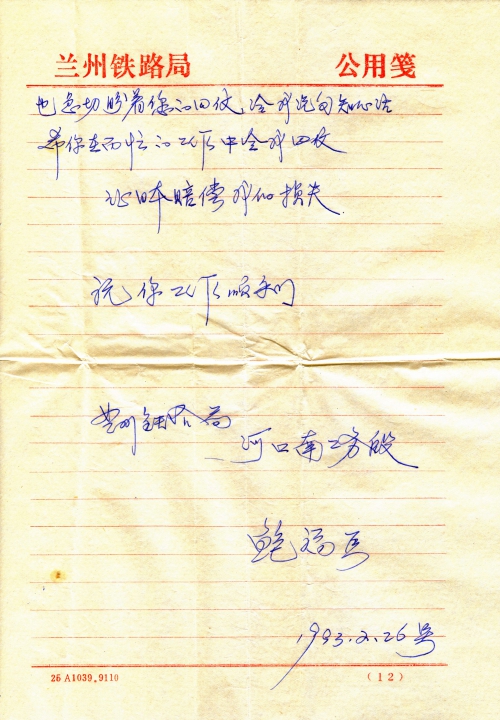 兰州铁路局 公用笺
也急切盼着你的回仪,令我说句知心话
希你在百忙的工作中令我回收
让日本赔偿我的损失
祝你工作顺利
兰州铁路局
河口南工务段
鲍福
1993.2.26号
26 A1039.9110 (12)